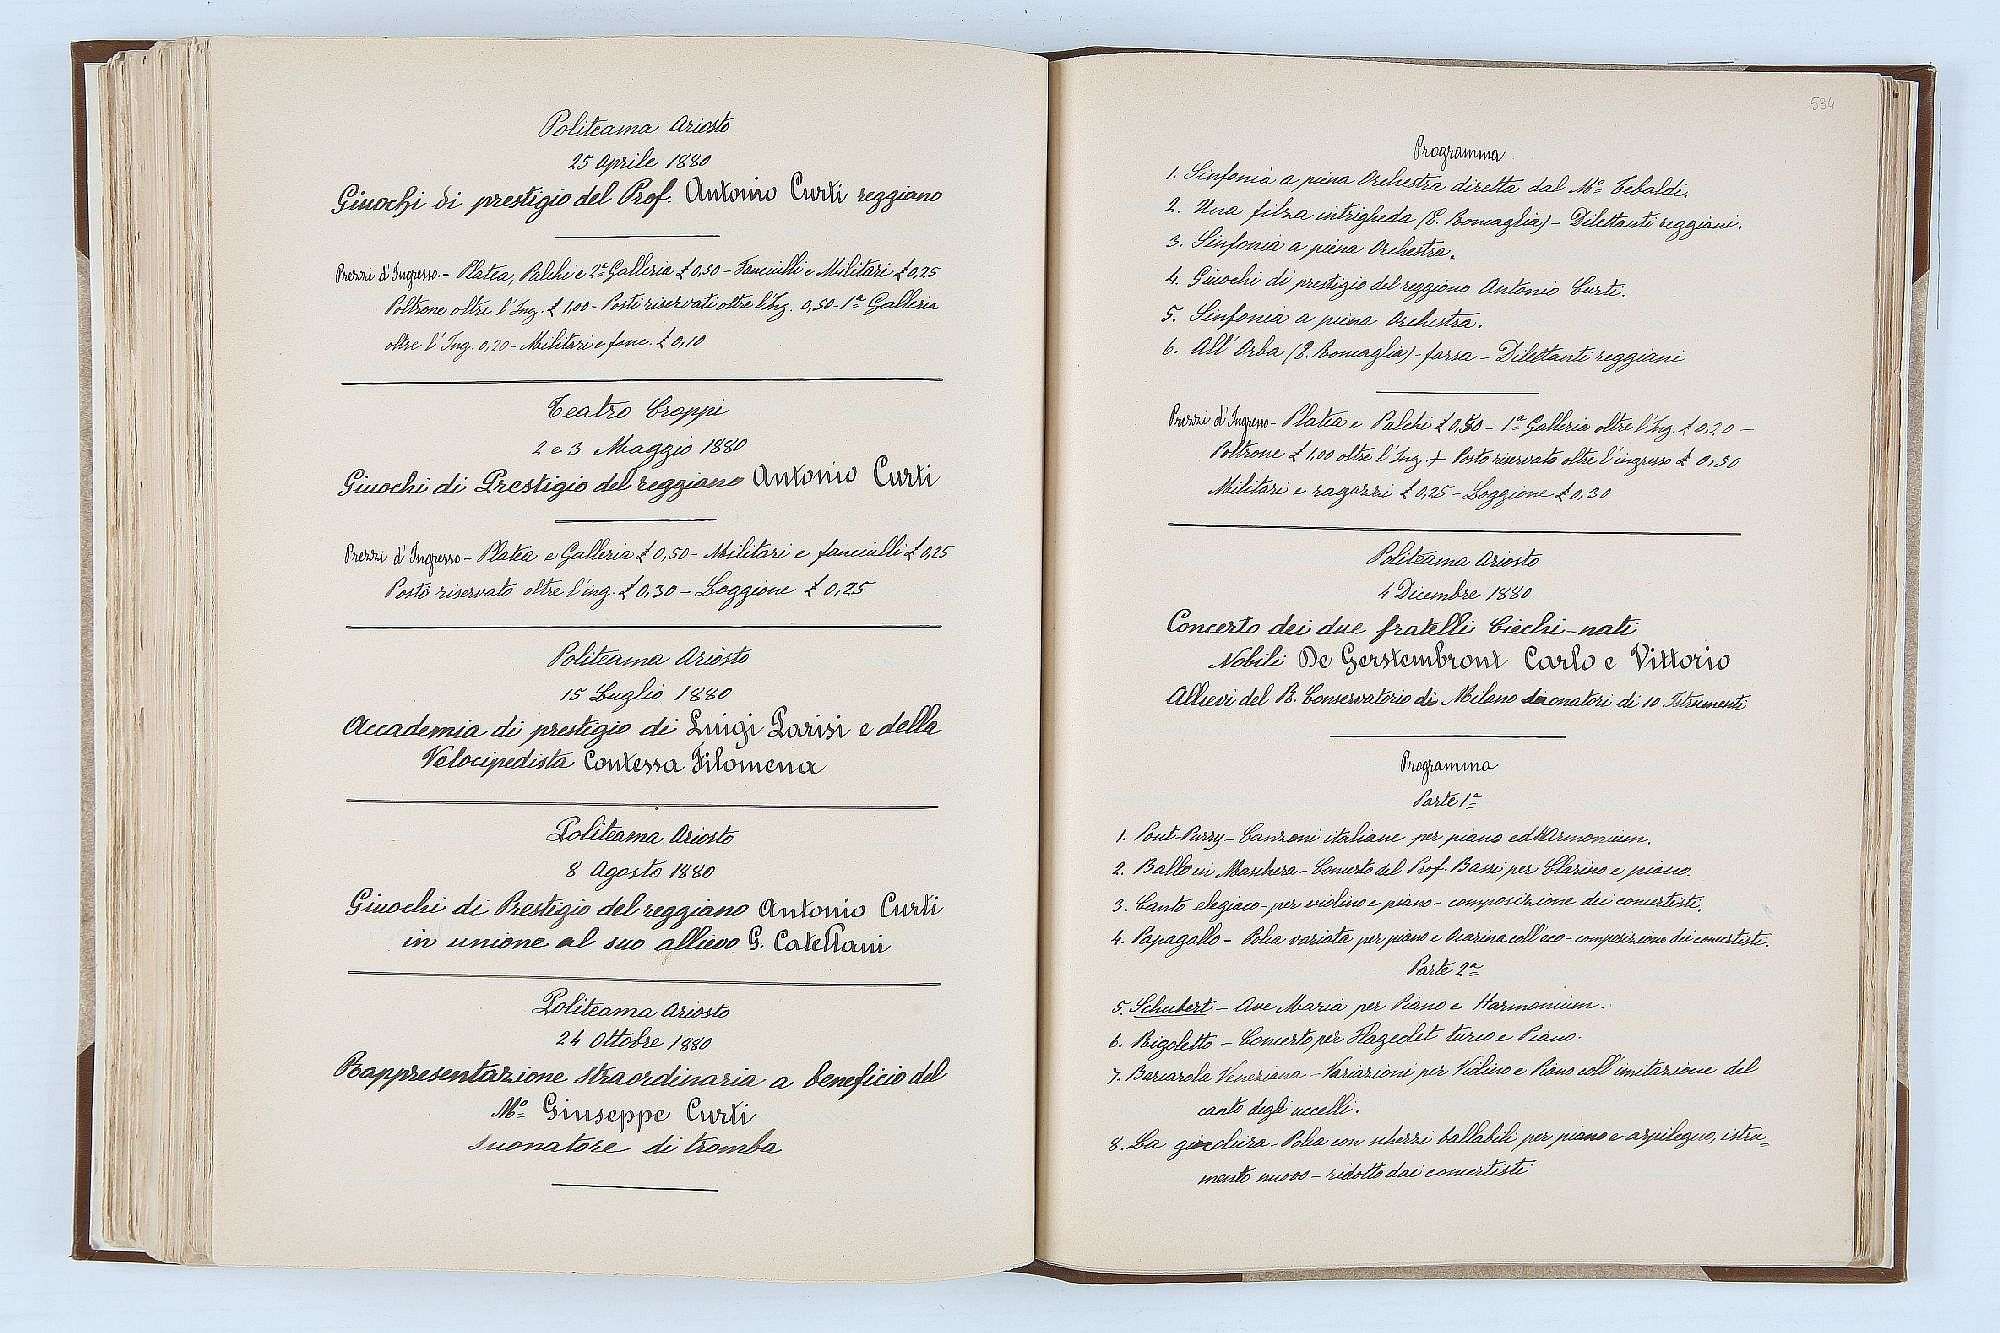 Politeama Ariosto
25 Aprile 1880
Giuochi di prestigio del Prof. Antonio Curti reggiano
Prezzi d'Ingresso - Platea, Palchi e 2ª Galleria £ 0,50 - Fanciulli e Militari £ 0,25
Poltrone oltre l'Ing. £ 1,00 - Posti riservati oltre l'Ing. 0,50 - 1ª Galleria
oltre l'Ing. 0,20 - Militari e fanc. £ 0,10
Teatro Groppi
2 e 3 Maggio 1880
Giuochi di Prestigio del reggiano Antonio Curti
Prezzi d'Ingresso - Platea e Galleria £ 0,50 - Militari e fanciulli £ 0,25
Posto riservato oltre l'ing. £ 0,30 - Loggione £ 0,25
Politeama Ariosto
15 Luglio 1880
Accademia di prestigio di Luigi Parisi e della
Velocipedista Contessa Filomena
Politeama Ariosto
8 Agosto 1880
Giuochi di Prestigio del reggiano Antonio Curti
in unione al suo allievo G. Catellani
Politeama Ariosto
24 Ottobre 1880
Rappresentazione straordinaria a beneficio del
Mº Giuseppe Curti
suonatore di tromba
534
Programma
1. Sinfonia a piena Orchestra diretta dal Mº Tebaldi.
2. Una filza intrigheda (E. Romaglia) - Dilettanti reggiani.
3. Sinfonia a piena Orchestra.
4. Giuochi di prestigio del reggiano Antonio Curti.
5. Sinfonia a piena Orchestra.
6. All' Orba (E. Romaglia) - farsa - Dilettanti reggiani
Prezzi d'Ingresso - Platea e Palchi £ 0,50 - 1ª Galleria oltre l'Ing. £ 0,20 -
Poltrone £ 1,00 oltre l'Ing. + Posto riservato oltre l'ingresso £ 0,30
Militari e ragazzi £ 0,25 - Loggione £ 0,30
Politeama Ariosto
4 Dicembre 1880
Concerto dei due fratelli Ciechi-nati
Nobili De Gerstembront Carlo e Vittorio
Allievi del R. Conservatorio di Milano suonatori di 10 Istrumenti
Programma
Parte 1ª
1. Pout-Purry - Canzoni italiane per piano ed Armonium.
2. Ballo in Maschera - Concerto del Prof. Bassi per Clarino e piano.
3. Canto elegiaco - per violino e piano - composizione dei concertisti.
4. Papagallo - Polka variata per piano e Ocarina coll'eco - composizione dei concertisti.
Parte 2ª
5. Schubert - Ave Maria per Piano e Harmonium.
6. Rigoletto - Concerto per Flageolet turco e Piano.
7. Barcarola Veneziana - Variazioni per Violino e Piano coll'imitazione del
canto degli uccelli.
8. La - Polka con scherzi ballabili per piano e arpilegno, istru=
mento nuovo - ridotto dai concertisti